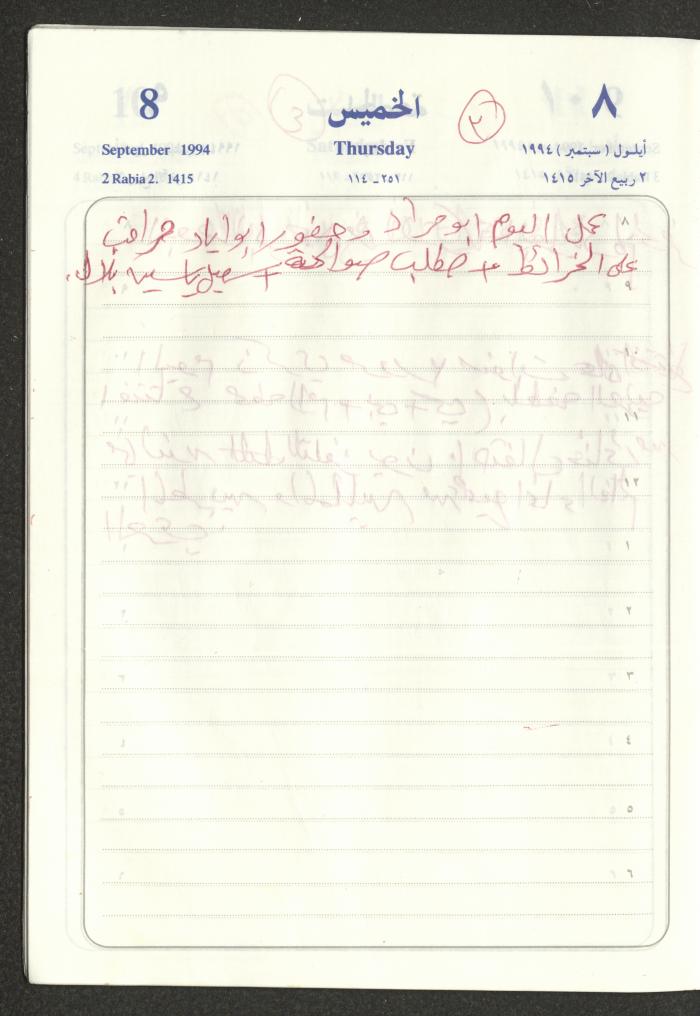 8 الخميس ٢ ٨
September 1994 Thursday أيلول (سبتمبر) ١٩٩٤
2 Rabia 2. 1415 ٢٥١ - ١١٤ ٢ ربيع الآخر ١٤١٥
٨ عمل اليوم ابو مراد وحضور ابو اياد مراقب
على الخرائط + مطلب صوالحة + ياسين بلال.
٩
١٠
١١
١٢
١
٢
٣
٤
٥
٦